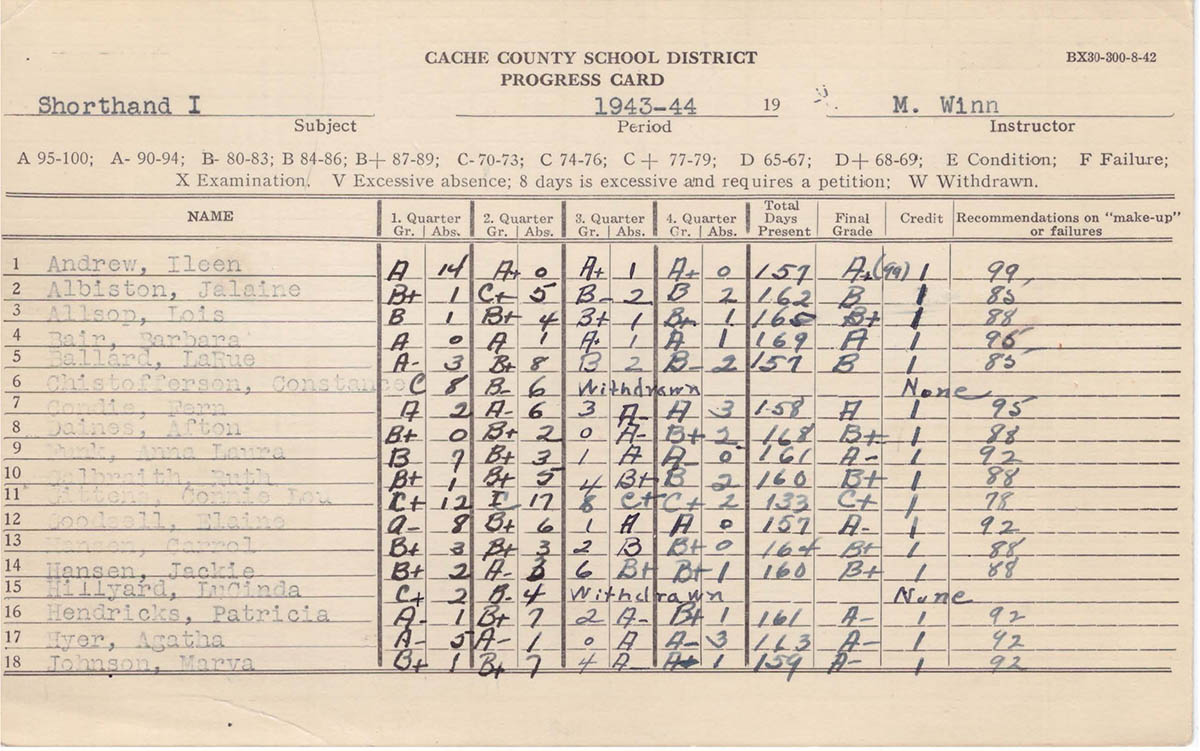 CACHE COUNTY SCHOOL DISTRICT BX30-300-8-42
PROGRESS CARD
Shorthand I 1943-44 19 M. Winn
Subject Period Instructor
A 95-100; A- 90-94; B- 80-83; B 84-86; B+ 87-89; C-70-73; C 74-76; C+ 77-79; D 65-67; D+ 68-69; E Condition; F Failure;
X Examination. V Excessive absence; 8 days is excessive and requires a petition; W Withdrawn.
NAME 1. Quarter 2. Quarter 3. Quarter 4. Quarter Total Days Present Final Grade Credit Recommendations on "make-up" or failures
Gr. Abs. Gr. Abs. Gr. Abs. Gr. Abs.
1 Andrew, Ileen A 14 A+ 0 A+ 1 A+ 0 157 A+(99) 1 99
2 Albiston, Jalaine B+ 1 C+ 5 B- 2 B 2 162 B 1 85
3 Allsop, Lois B 1 B+ 4 B+ 1 B+ 1 165 B+ 1 88
4 Bair, Barbara A 0 A 1 A+ 1 A 1 169 A 1 96
5 Ballard, LaRue A- 3 B+ 8 B 2 B- 2 157 B 1 85
6 Chistofferson, Constance C 8 B- 6 Withdrawn None
7 Condie, Fern A 2 A- 6 3 A- A 3 158 A 1 95
8 Daines, Afton B+ 0 B+ 2 0 A- B+ 2 168 B+ 1 88
9 Funk, Anna Laura B 7 B+ 3 1 A A- 0 161 A- 1 92
10 Galbraith, Ruth B+ 1 B+ 5 4 B+ B 2 160 B+ 1 88
11 Gittens, Connie Lou C+ 12 I 17 8 C+ C+ 2 133 C+ 1 78
12 Goodsell, Elaine A- 8 B+ 6 1 A A 0 157 A- 1 92
13 Hansen, Carrol B+ 3 B+ 3 2 B B+ 0 164 B+ 1 88
14 Hansen, Jackie B+ 2 A- 3 6 B+ B+ 1 160 B+ 1 88
15 Hillyard, LuCinda C+ 2 4 Withdrawn None
16 Hendricks, Patricia A- 1 B+ 7 2 A- B+ 1 161 A- 1 92
17 Hyer, Agatha A- 5 A- 1 0 A A- 3 163 A- 1 92
18 Johnson, Marva B+ 1 B+ 7 4 A- A+ 1 159 A- 1 92